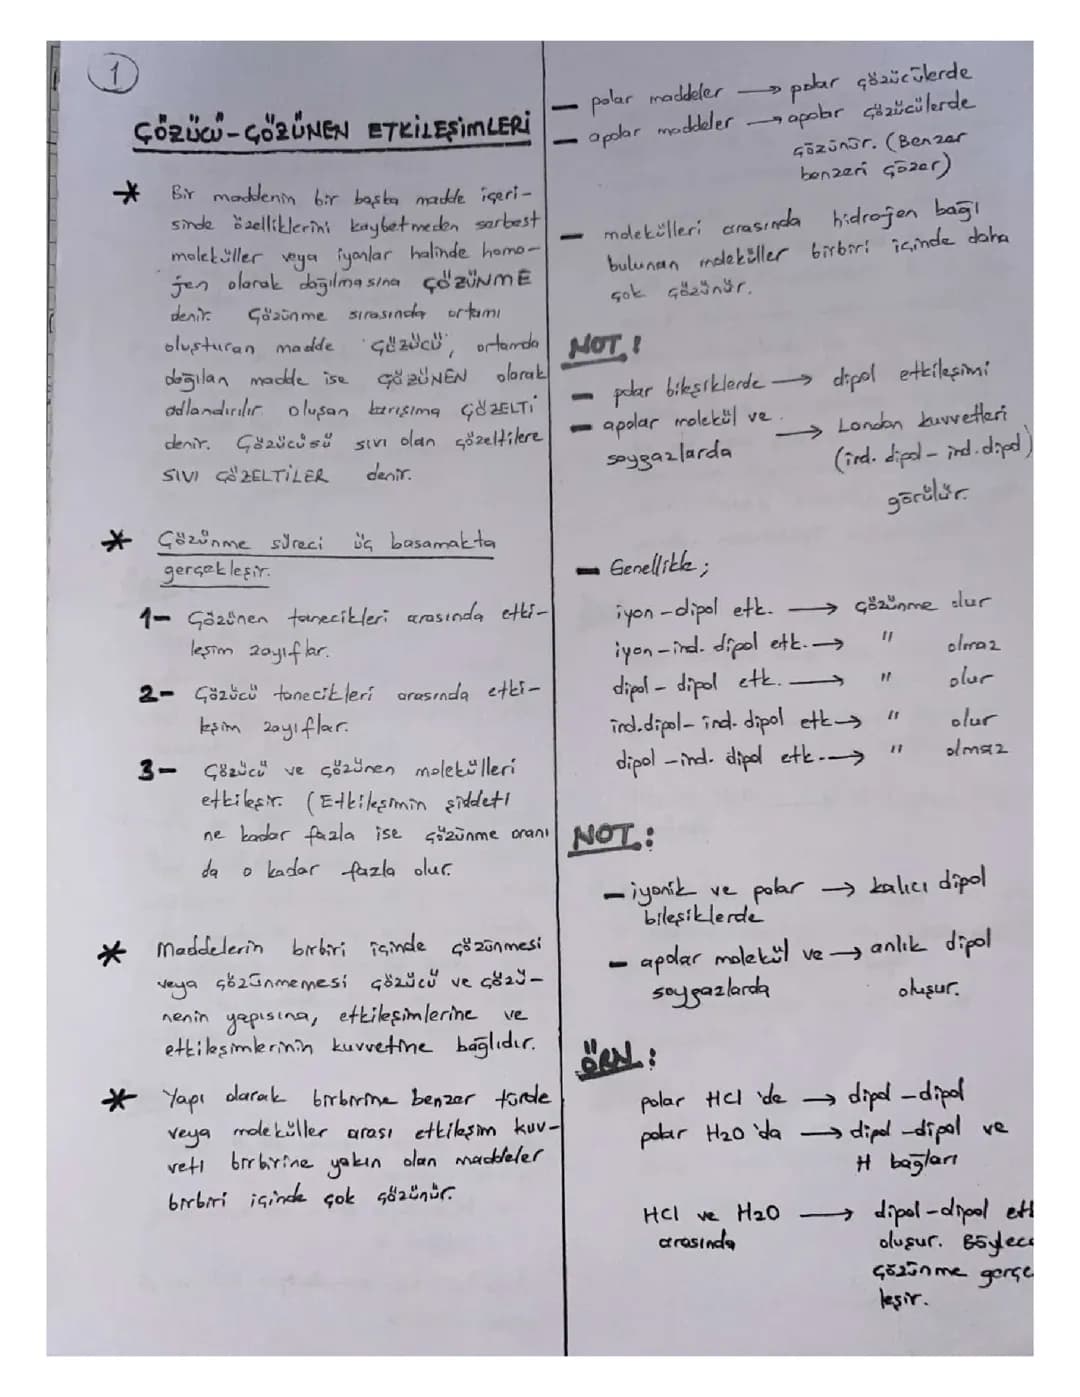 1
ÇÖZÜCÜ-ÇÖZÜNEN ETKİLEŞİMLERİ
* Bir maddenin bir başka madde içeri-
sinde özelliklerini kaybetmeden serbest
moleküller veya iyonlar halinde homo-
jen olarak dağılmasına ÇÖZÜNME
denir. Çözünme sırasında ortamı
oluşturan madde ÇÖZÜCÜ, ortamda
dağılan madde ise ÇÖZÜNEN olarak
adlandırılır. Oluşan karışıma ÇÖZELTİ
denir. Çözücüsü sıvı olan çözeltilere
SIVI ÇÖZELTİLER denir.
* Çözünme süreci üç basamakta
gerçekleşir.
1- Çözünen tanecikleri arasında etki-
leşim zayıflar.
2- Çözücü tanecikleri arasında etki-
leşim zayıflar.
3- Çözücü ve çözünen molekülleri
etkileşir. (Etkileşimin şiddeti
ne kadar fazla ise çözünme oranı
da o kadar fazla olur.
* Maddelerin birbiri içinde çözünmesi
veya çözünmemesi çözücü ve çözü-
nenin yapısına, etkileşimlerine ve
etkileşimlerinin kuvvetine bağlıdır.
* Yapı olarak birbirine benzer türde
veya moleküller arası etkileşim kuv-
veti birbirine yakın olan maddeler
birbiri içinde çok çözünür.
- polar maddeler → polar çözücülerde
- apolar maddeler → apolar çözücülerde
çözünür. (Benzer
benzeri çözer)
- molekülleri arasında hidrojen bağı
bulunan moleküller birbiri içinde daha
çok çözünür.
NOT!
- polar bileşiklerde → dipol etkileşimi
- apolar molekül ve
soygazlarda → London kuvvetleri
(ind. dipol - ind. dipol)
görülür.
- Genellikle;
iyon - dipol etk. → çözünme olur
iyon - ind. dipol etk. → " olmaz
dipol - dipol etk. → " olur
ind.dipol - ind. dipol etk → " olur
dipol - ind. dipol etk. → " olmaz
NOT:
- iyonik ve polar → kalıcı dipol
bileşiklerde
- apolar molekül ve → anlık dipol
soygazlarda oluşur.
ÖRN:
polar HCl 'de → dipol - dipol
polar H2O 'da → dipol - dipol ve
H bağları
HCl ve H2O → dipol - dipol etk
arasında oluşur. Böylece
çözünme gerçe
leşir.